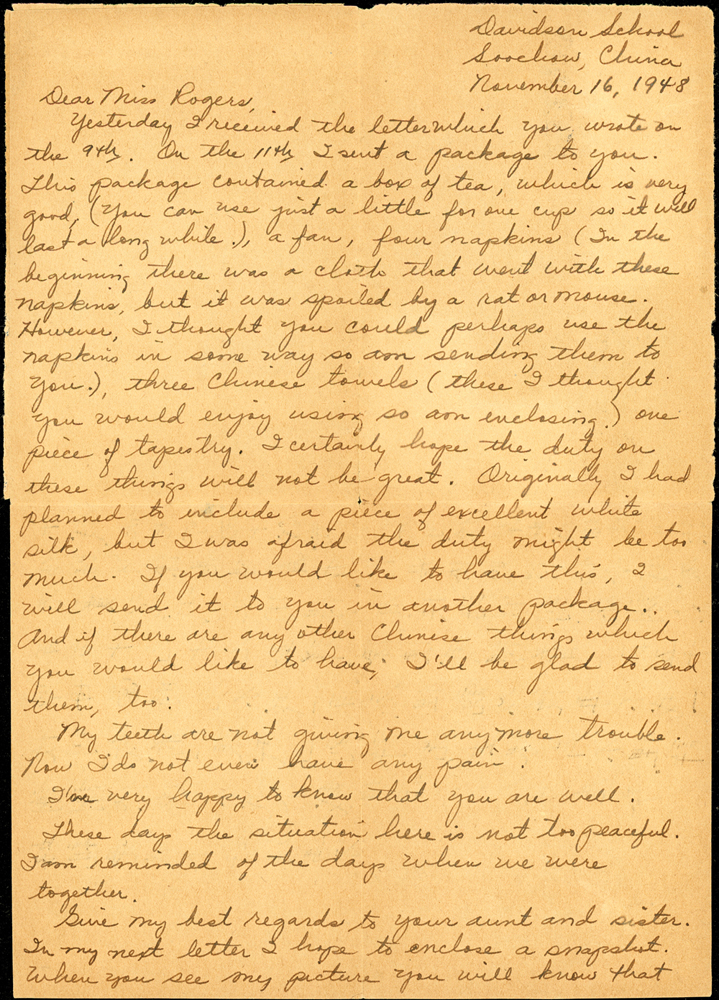 Davidson School
Soochow, China
November 16, 1948
Dear Miss Rogers,
Yesterday I received the letter which you wrote on
the 9th. On the 11th I sent a package to you.
This package contained a box of tea, which is very
good, (You can use just a little for one cup so it will
last a long while.), a fan, four napkins (In the
beginning there was a cloth that went with these
napkins, but it was spoiled by a rat or mouse.
However, I thought you could perhaps use the
napkins in some way so am sending them to
you.), three Chinese towels (these I thought
you would enjoy using so am enclosing.) one
piece of tapestry. I certainly hope the duty on
these things will not be great. Originally I had
planned to include a piece of excellent white
silk, but I was afraid the duty might be too
much. If you would like to have this, I
will send it to you in another package..
And if there are any other Chinese things which
you would like to have, I'll be glad to send
them, too.
My teeth are not giving me any more trouble.
Now I do not even have any pain.
I'm very happy to know that you are well.
These days the situation here is not too peaceful.
I am reminded of the days when we were
together.
Give my best regards to your aunt and sister.
In my next letter I hope to enclose a snapshot.
When you see my picture you will know that